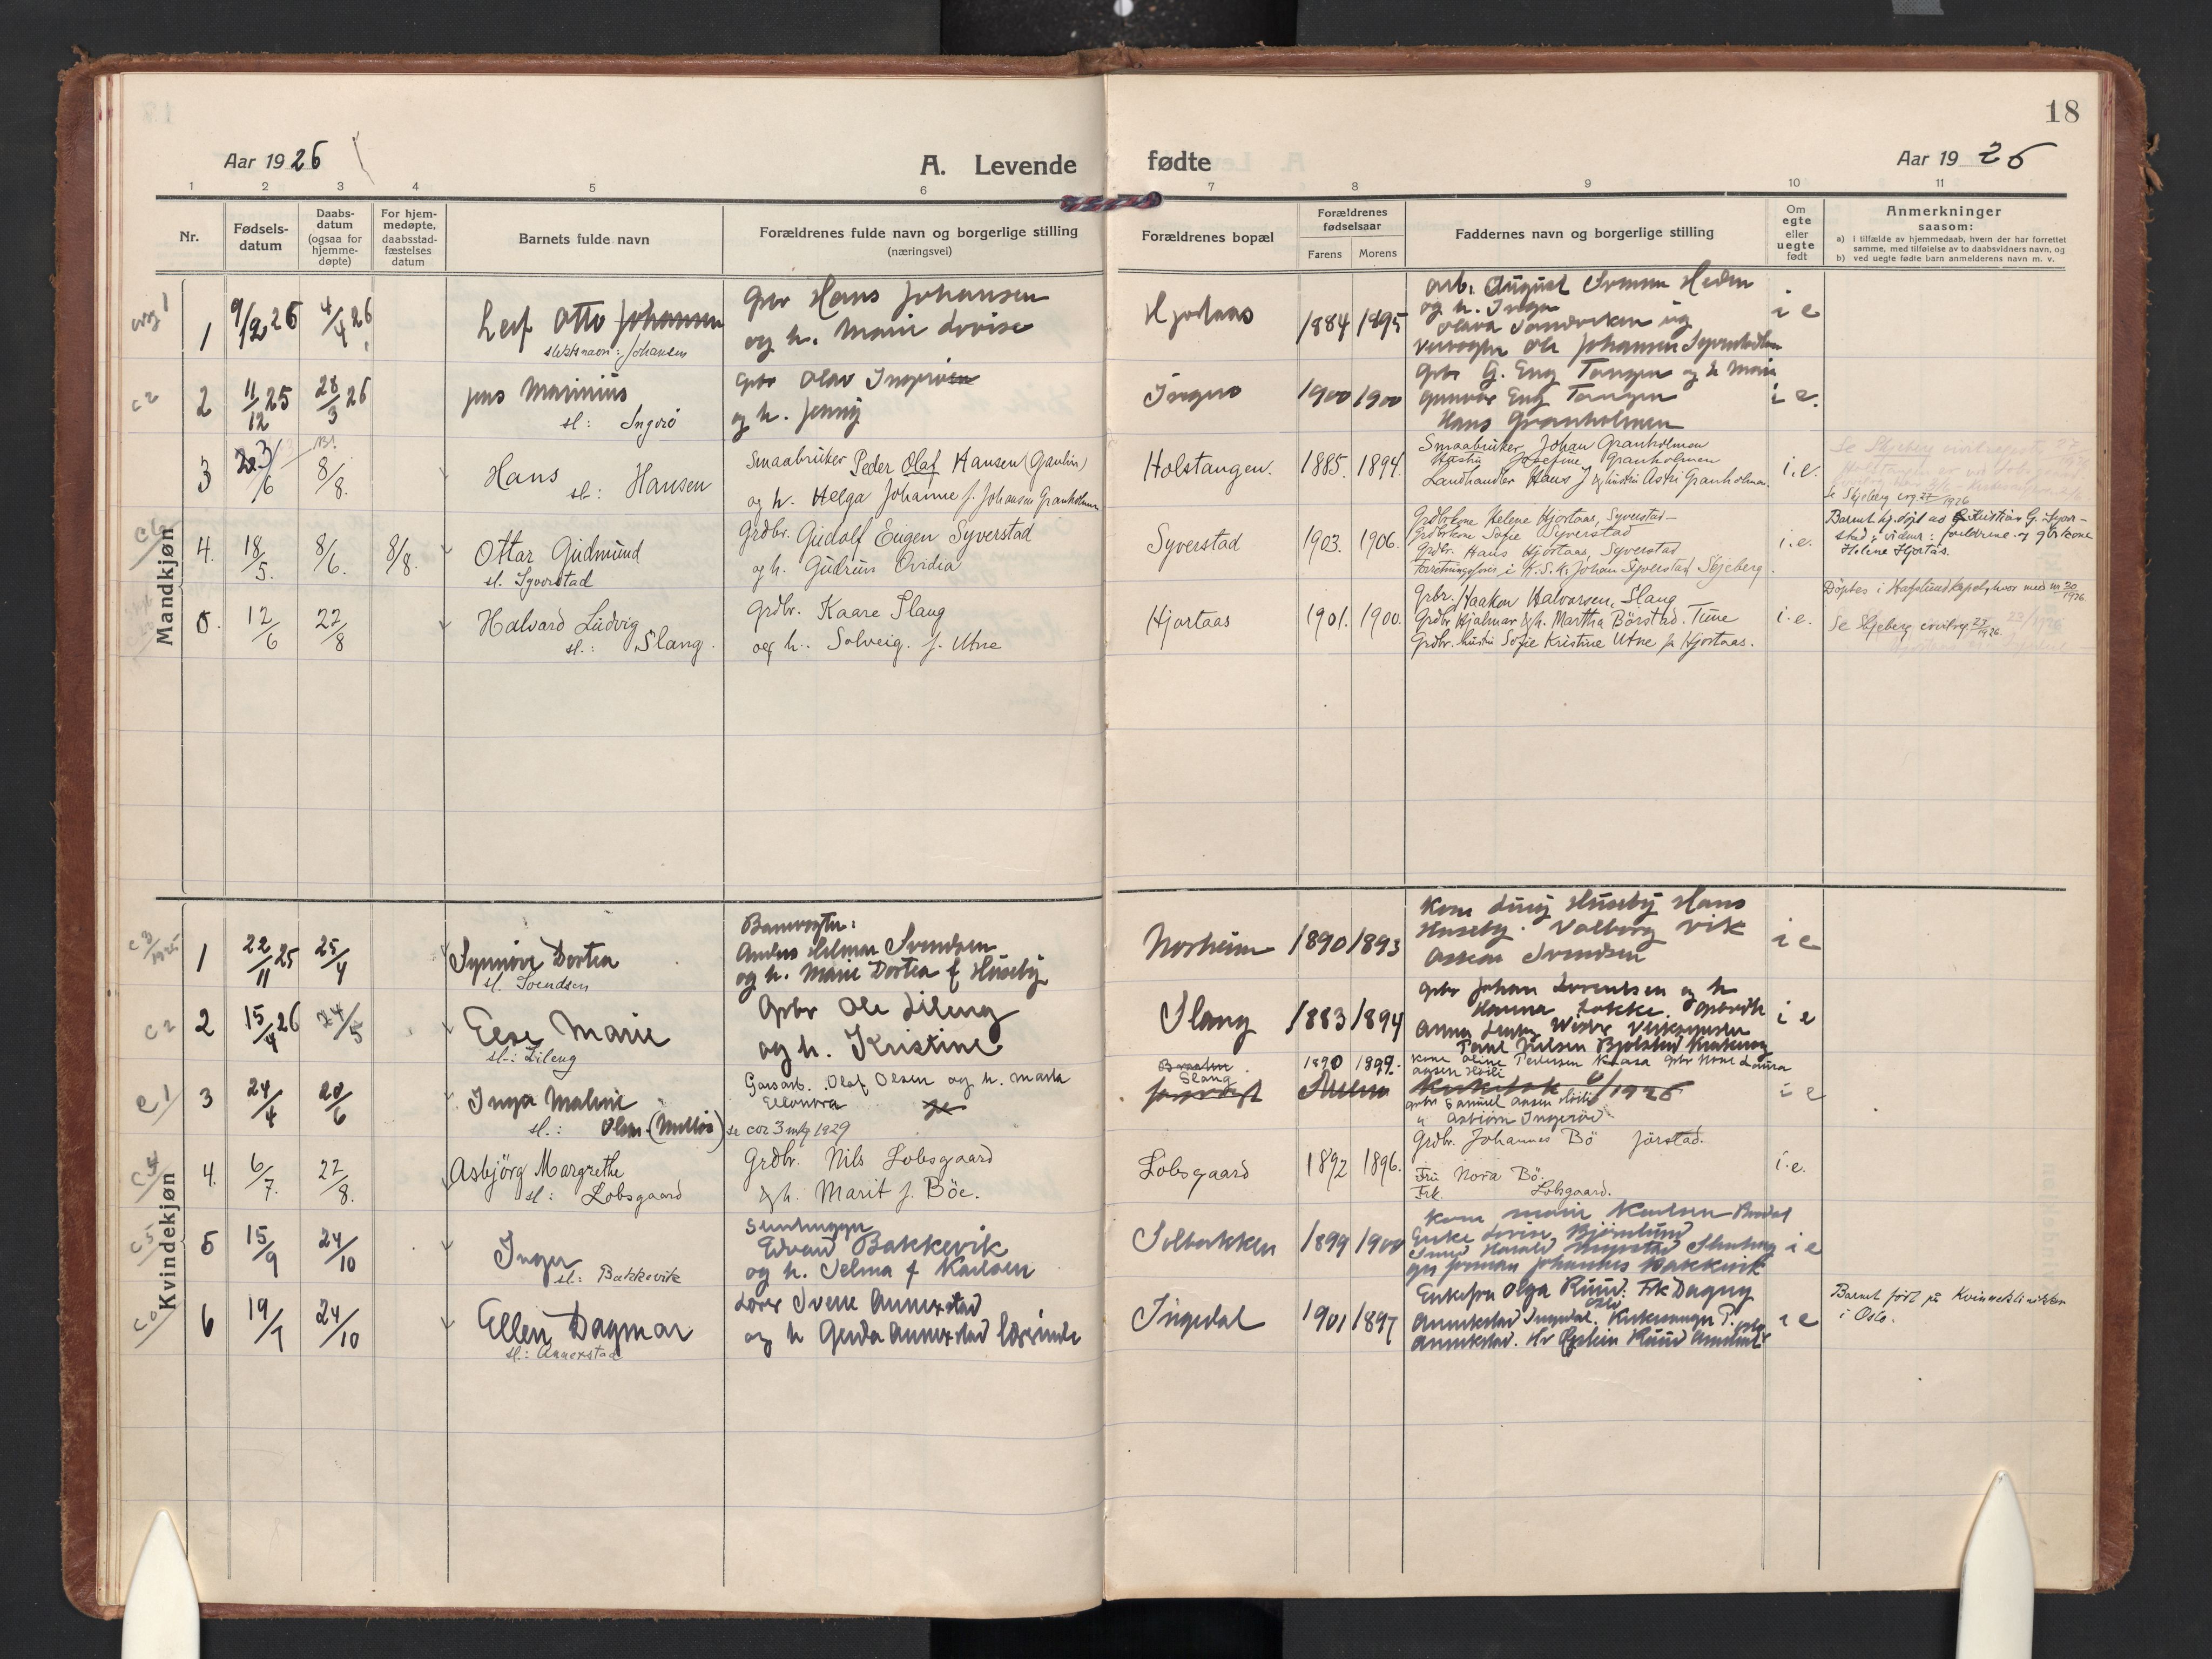 18
Aar 1926
A. Levende fødte
Aar 1926
1 2 3 4 5 6 7 8 9 10 11
Nr.
Fødsels-
datum
Daabs-
datum
(ogsaa for
hjemme-
døpte)
For hjem-
medøpte,
daabsstad-
fæstelses
datum
Barnets fulde navn
Forældrenes fulde navn og borgerlige stilling
(næringsvei)
Forældrenes bopæl
Forældrenes
fødselsaar
Farens Morens
Faddernes navn og borgerlige stilling
Om
egte
eller
uegte
født
Anmerkninger
saasom:
a) i tilfælde av hjemmedaab, hvem der har forrettet
samme, med tilføielse av to daabsvidners navn, og
b) ved uegte fødte barn anmelderens navn m. v.
Mandkjøn
1 9/2 26 4/4 26 Leif Otto Johansen
slektsnavn: Johansen
Gbr Hans Johansen
og h. Marie Lovise
Hjortaas 1884 1895
arb. August
og h. Inga
Ole Johansen
i e
c 2
2 11/12 25 28/3 26 Jens Marinius
sl: Ingerø
Gbr Olav Ingerøen
og h. Jenny
Ingerø 1900 1900
Gbr G. Eng Tangen og h Marie
Gunvor Eng Tangen
Hans Granholmen
i e.
3 /6 8/8. Hans
sl: Hansen
Smaabruker Peder Olaf Hansen (Gaulin)
og h. Helga Johanne f. Johansen Granholmen
Holstangen. 1885. 1894.
Smaabruker Johan Granholmen
Hustru Josefine Granholmen
Landhandler Hans J og hustru Astri Granholmen.
i.e.
Se Skjeberg crg 27/1926
4. 18/5. 8/6. 8/8. Ottar Gudmund
sl. Syverstad
Grdbr. Gudolf Eugen Syverstad
og h. Gudrun Ovidia
Syverstad 1903. 1906.
Grdbrkone Helene Hjortaas, Syverstad
Grdbrkone Sofie Syverstad
Grdbr. Hans Hjortaas, Syverstad
Forretningsfører i K.S.K. Johan Syverstad Skjeberg.
i.e.
Barnet hj.døpt av Kristian G. Syver-
stad; vidner: foreldrene og gbrkone
Helene Hjortås.
5. 12/6 22/8 Halvard Ludvig
sl.: Slang.
Grdbr. Kaare Slang
og h. Solveig. f. Utne
Hjortaas 1901. 1900.
Grbr. Haakon Halvorsen, Slang
Grdbr Hjalmar &h. Martha Börstad. Tune
Grdbr. hustru Sofie Kristine Utne fr Hjortaas.
i.e.
Döptes i Hafslund kapel, hvor med nr 20/1926.
Se Skjeberg civilreg. 27/1926.
Kvindekjøn
c 3/1925
1 22/11 25 25/4 Synnöve Dortea
sl. Svendsen
Banevogter:
Anders Hilmar Svendsen
og h. Marie Dortea f Huseby
Norheim 1890 1893
Kone Huseby Hans
Huseby. Valborg Vik
Svendsen
i e
c 2
2 15/4 26 24/5 Else Marie
sl.: Lileng
Gbr Ole Lileng
og h. Kristine
Slang 1883 1894
Gbr Johan Lorentsen og h
Hanna Løkke.
Anna
Paul Nilsen
i e
c 1
3 24/4 20/6 Inga Maline
sl.: Olsen.
Garsarb. Olaf Olsen og h. Marta
Ellenora
se cor 3 mtg 1929
Braaten
Slang 1890 1899.
Kone Oline Pedersen Kaasa Gbr Kone Laura
Gbr Samuel
Asbjørn Ingerød
6/1926
i e
4. 6/7. 22/8. Asbjörg Margrethe
sl: Lobsgaard
Grdbr. Nils Lobsgaard
&h. Marit f. Böe.
Lobsgaard 1892 1896.
Grdbr. Johannes Bö Jörstad.
Fru Nora Bö.
Frk. Lobsgaard.
i.e.
c 5
5 15/9 24/10 Inger
sl: Bakkevik
Stenhugger
Edvard Bakkevik
og h. Selma f Karlsen
Solbakken 1899 1900
Kone Marie Karlsen
Enke Lovise Björnlund
Smed Harald
Johannes Bakkevik
i e
6 19/7 24/10 Ellen Dagmar
sl: Annerstad
Lærer Sverre Annerstad
og h Gerda Annerstad lærerinde
Ingedal 1901 1897
Enkefru Olga Ruud. Frk Dagny
Oslo
Annerstad Ingedal. Kirkesanger P.
Annerstad. Hr Öystein Ruud
i e
Barnet födt på Kvinneklinikken
i Oslo.